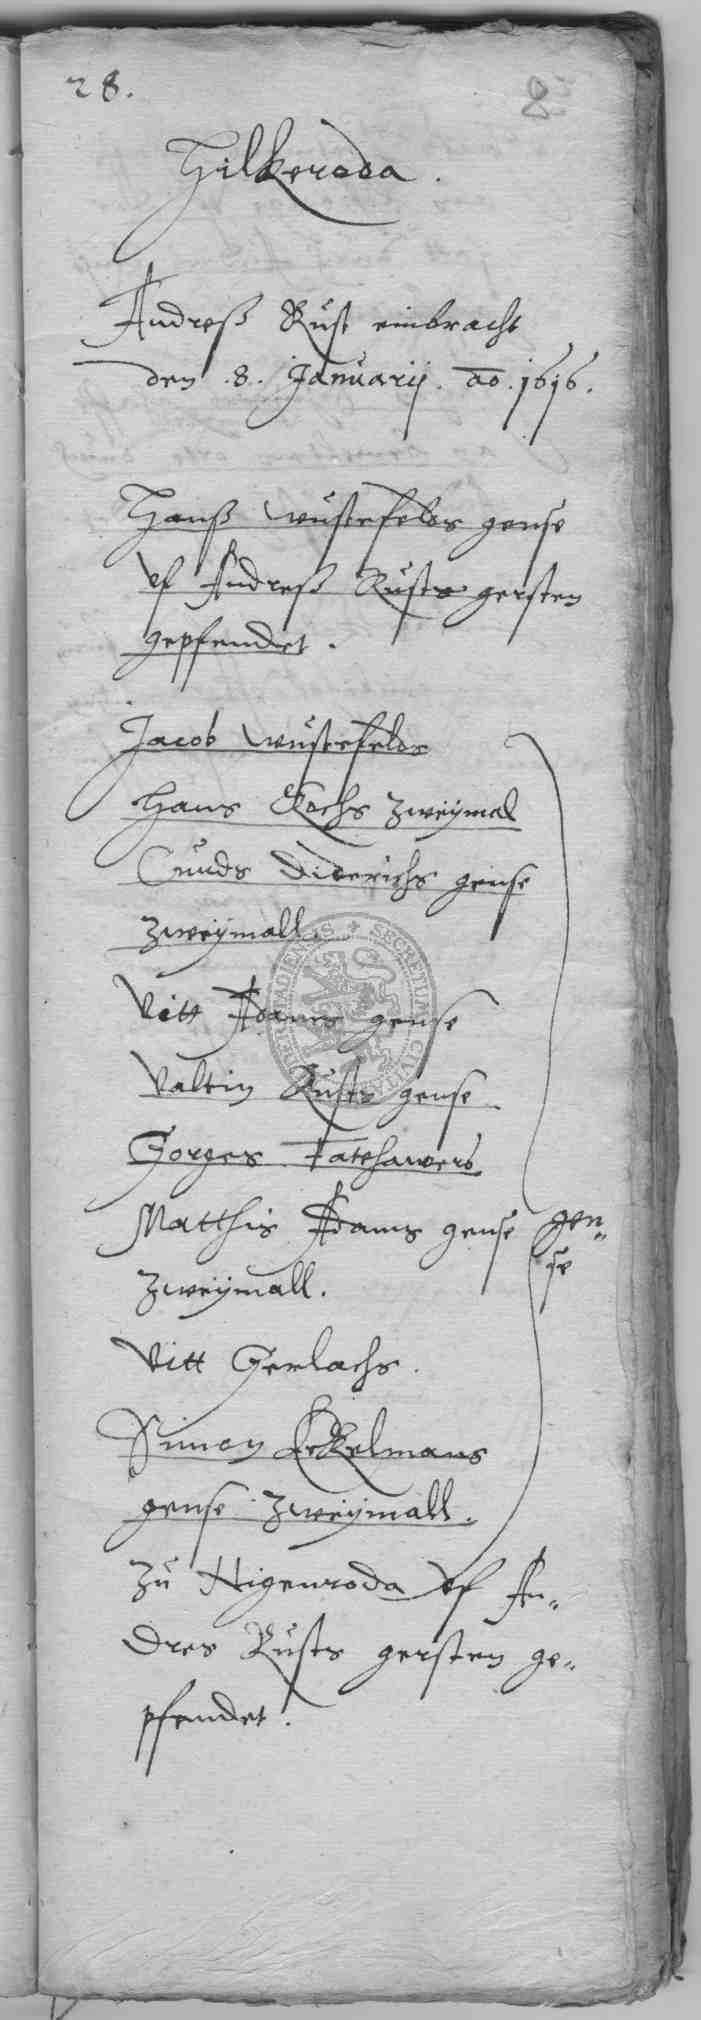 28.
8
Hilkeroda.
Andreß Rust einbracht
den .8. Januarij. ao. 1616.
Hanß wustefelds gense
vf Andreß Rusts gersten
gepfendet.
Jacob wustefelds
Hans Kochs zweymal
Cunds Diderichs gense
zweymall.
Vitt Adams gense
Valtin Rusts gense
Gorges
Matthis Adams gense gen„
se
zweymall.
Vitt Gerlachs.
Simon Eckelmans
gense zweymall.
zu Higenroda vf An„
dres Rusts gersten ge„
pfendet.
SECRETUM CIVITATIS